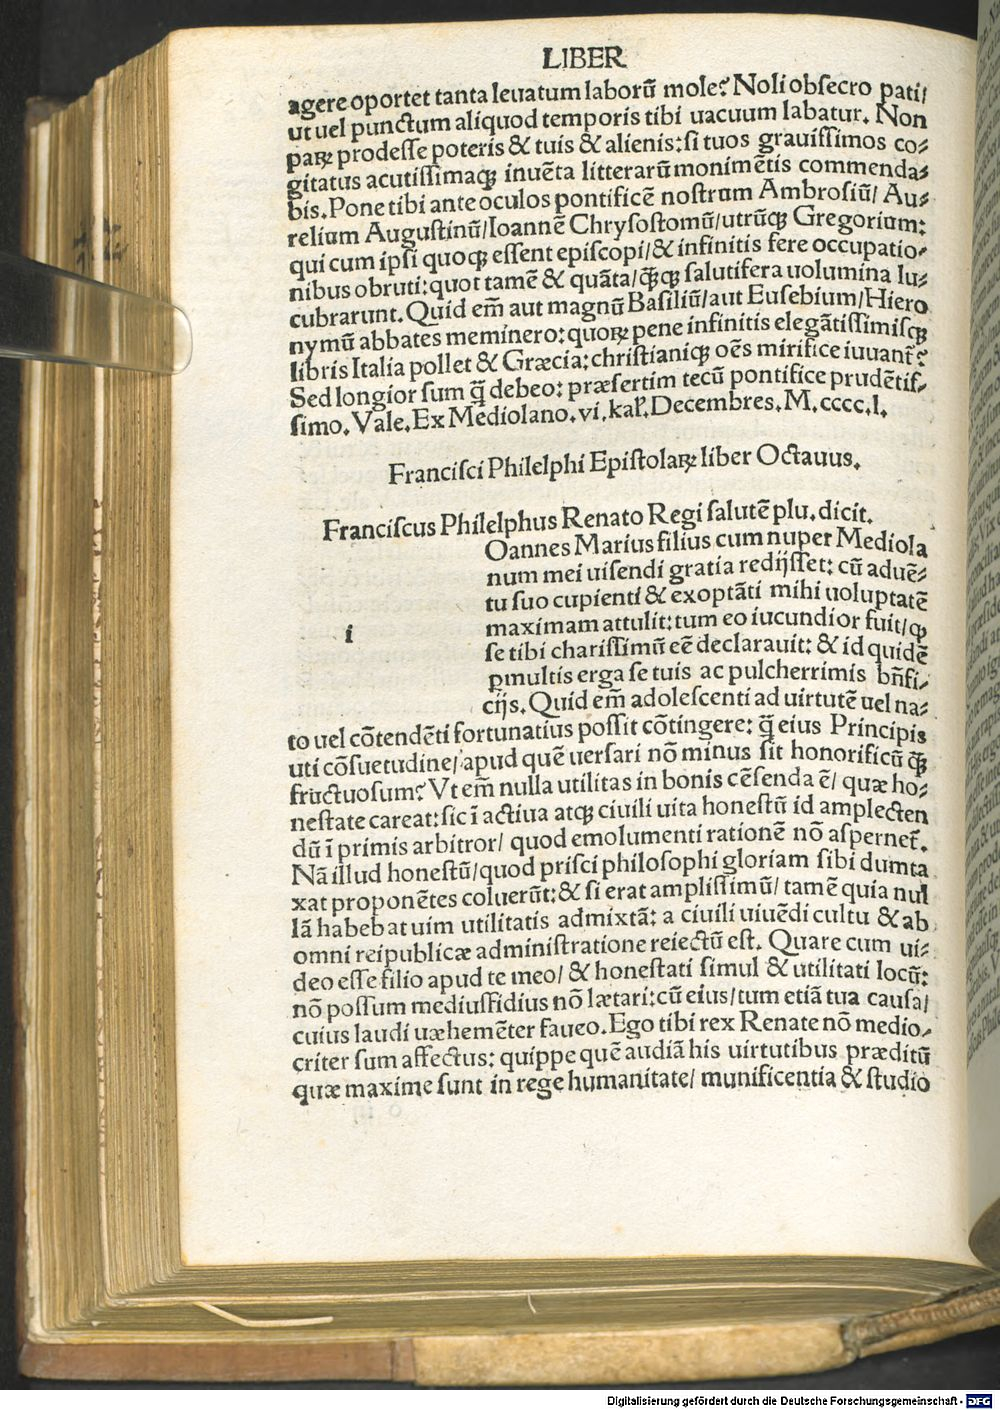 LIBER
agere oportet tanta leuatum laborū mole? Noli obſecro pati/
ut uel punctum aliquod temporis tibi uacuum labatur. Non
parꝝ prodeſſe poteris & tuis & alienis: ſi tuos grauiſſimos co⸗
gitatus acutiſſimaqꝫ inuēta litterarū monimētis commenda⸗
bis. Pone tibi ante oculos pontificē noſtrum Ambroſiū/ Au⸗
relium Auguſtinū/ Ioannē Chryſoſtomū/ utrūqꝫ Gregorium:
qui cum ipſi quoqꝫ eſſent epiſcopi/ & infinitis fere occupatio⸗
nibus obruti: quot tamē & quāta/ q̄qꝫ ſalutifera uolumina lu⸗
cubrarunt. Quid em̄ aut magnū Baſiliū/ aut Euſebium/ Hiero
nymū abbates meminero: quoꝝ pene infinitis elegātiſſimiſqꝫ
libris Italia pollet & Græcia: chriſtianiqꝫ oēs mirifice iuuant̄?
Sed longior ſum q̄ debeo: præſertim tecū pontifice prudētiſ⸗
ſimo. Vale. Ex Mediolano. vi. kaꝉ. Decembres. M. cccc. l.
Franciſci Philelphi Epiſtolaꝝ liber Octauus.
Franciſcus Philelphus Renato Regi ſalutē plu. dicit.
i
Oannes Marius filius cum nuper Mediola
num mei uiſendi gratia redijſſet: cū aduē⸗
tu ſuo cupienti & exoptāti mihi uoluptatē
maximam attulit: tum eo iucundior fuit/ qꝫ
ſe tibi chariſſimū eē declarauit: & id quidē
ꝑmultis erga ſe tuis ac pulcherrimis bn̄fi⸗
cijs. Quid em̄ adoleſcenti ad uirtutē uel na⸗
to uel cōtendēti fortunatius poſſit cōtingere: q̄ eius Principis
uti cōſuetudine/ apud quē uerſari nō minus ſit honorificū q̄ꝫ
fructuoſum? Vt em̄ nulla utilitas in bonis cēſenda ē/ quæ ho⸗
neſtate careat: ſic ī actiua atqꝫ ciuili uita honeſtū id amplecten
dū ī primis arbitror/ quod emolumenti rationē nō aſpernet̄.
Nā illud honeſtū/ quod priſci philoſophi gloriam ſibi dumta
xat proponētes coluerūt: & ſi erat ampliſſimū/ tamē quia nul
lā habebat uim utilitatis admixtā: a ciuili uiuēdi cultu & ab
omni reipublicæ adminiſtratione reiectū eſt. Quare cum ui⸗
deo eſſe filio apud te meo/ & honeſtati ſimul & utilitati locū:
nō poſſum mediuſfidius nō lætari: cū eius/ tum etiā tua cauſa/
cuius laudi uæhemēter faueo. Ego tibi rex Renate nō medio⸗
criter ſum affectus: quippe quē audiā his uirtutibus præditū
quæ maxime ſunt in rege humanitate/ munificentia & ſtudio
Digitalisierung gefördert durch die Deutsche Forschungsgemeinschaft - DFG